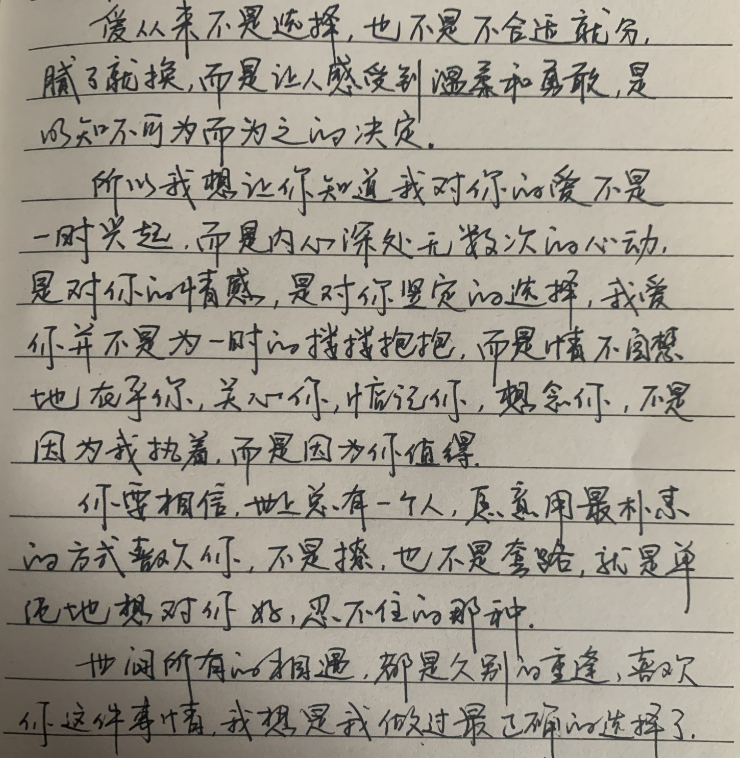 爱从来不是选择，也不是不合适就分，
腻了就换，而是让人感受到温柔和勇敢，是
明知不可为而为之的决定。
所以我想让你知道我对你的爱不是
一时兴起，而是内心深处无数次的心动，
是对你的情感，是对你坚定的选择，我爱
你并不是为一时的搂搂抱抱，而是情不自禁
地在乎你，关心你，惦记你，想念你，不是
因为我执着，而是因为你值得。
你要相信，世上总有一个人，愿意用最朴素
的方式喜欢你，不是撩，也不是套路，就是单
纯地想对你好，忍不住的那种。
世间所有的相遇，都是久别的重逢，喜欢
你这件事情，我想是我做过最正确的选择了。